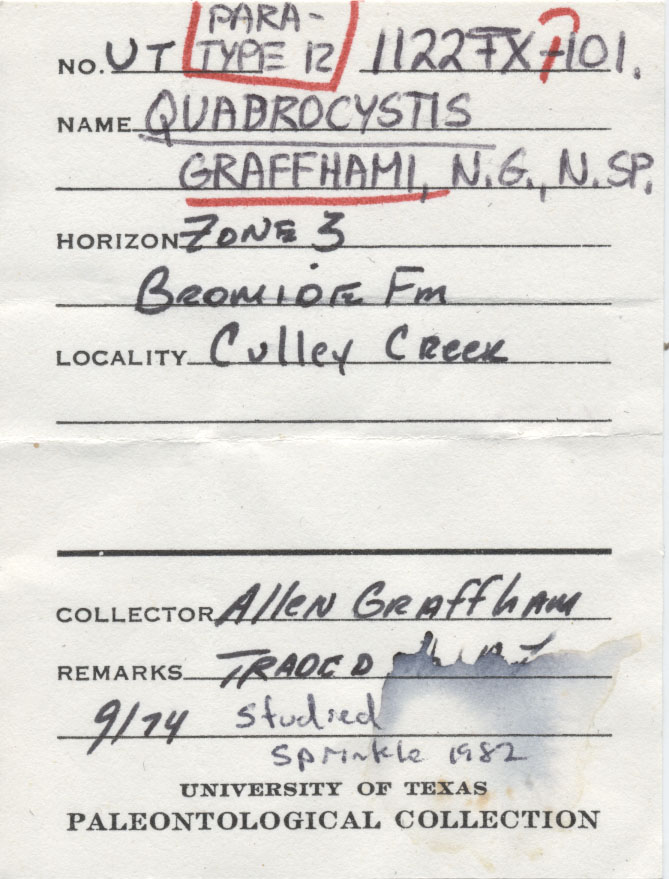 PARA-
NO. UT TYPE 12 1122TX-101.
NAME QUADROCYSTIS
GRAFFHAMI, N.G., N.SP.
HORIZON ZONE 3
BROMIDE Fm
LOCALITY Culley Creek
COLLECTOR Allen Graffham
REMARKS TRADED
9/74 Studied
Sprinkle 1982
UNIVERSITY OF TEXAS
PALEONTOLOGICAL COLLECTION